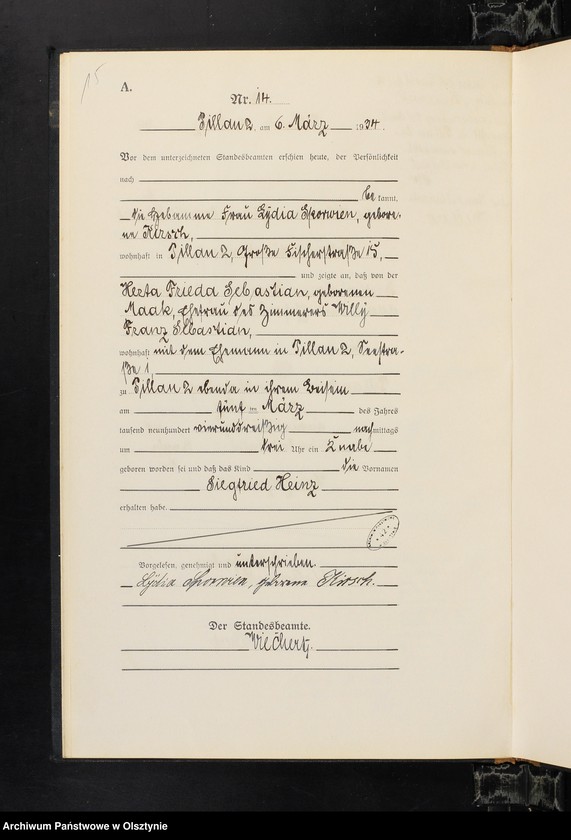 15
A.
Nr. 14.
Pillau 2, am 6. März 1934.
Vor dem unterzeichneten Standesbeamten erschien heute, der Persönlichkeit
nach
be kannt,
die Hebamme Frau Lydia Sporwien, gebore-
ne Kirsch,
wohnhaft in Pillau 2, Große Fischerstraße 15,
und zeigte an, daß von der
Herta Frieda Sebastian, geborenen
Maak, Ehefrau des Zimmerers Willy
Franz Sebastian,
wohnhaft mit dem Ehemann in Pillau 2, Seestra-
ße 1,
zu Pillau 2 ebenda in ihrem Beisein
am fünf ten März des Jahres
tausend neunhundert vierunddreißig nachmittags
um drei Uhr ein Knabe
geboren worden sei und daß das Kind die Vornamen
Siegfried Heinz
erhalten habe.
Vorgelesen, genehmigt und unterschrieben.
Lydia Sporwien, geborene Kirsch.
Der Standesbeamte.
Wiechert.
Archiwum Państwowe w Olsztynie